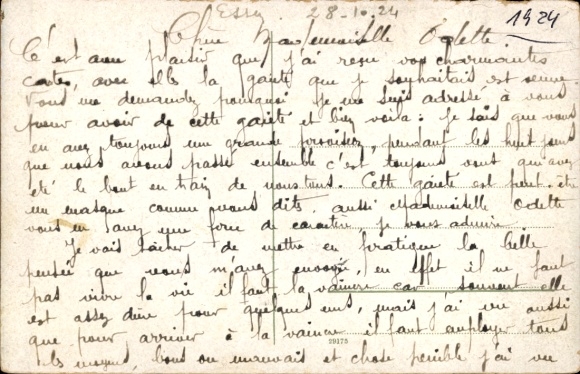 Essey 28-10-24
1924
Chère Mademoiselle Odette
C'est avec plaisir que j'ai reçu vos charmantes
cartes, avec elles la gaieté que je souhaitais est venue.
Vous me demandez pourquoi je me suis adressé à vous
pour avoir de cette gaieté et bien voila: Je sais que vous
en avez toujours une grande provision, pendant les huit jours
que nous avons passé ensemble c'est toujours vous qui avez
été le bout en train de nous tous. Cette gaieté est peut-être
un masque comme vous dites, aussi Mademoiselle Odette
vous en avez une force de caractère, je vous admire.
Je vais tâcher de mettre en pratique la belle
pensée que vous m'avez envoyé, en effet il ne faut
pas vivre la vie il faut la vaincre car souvent elle
est assez dure pour quelques uns, mais j'ai vu aussi
que pour arriver à la vaincre il faut employer tous
les moyens, bons ou mauvais et chose penible j'ai vu
29175